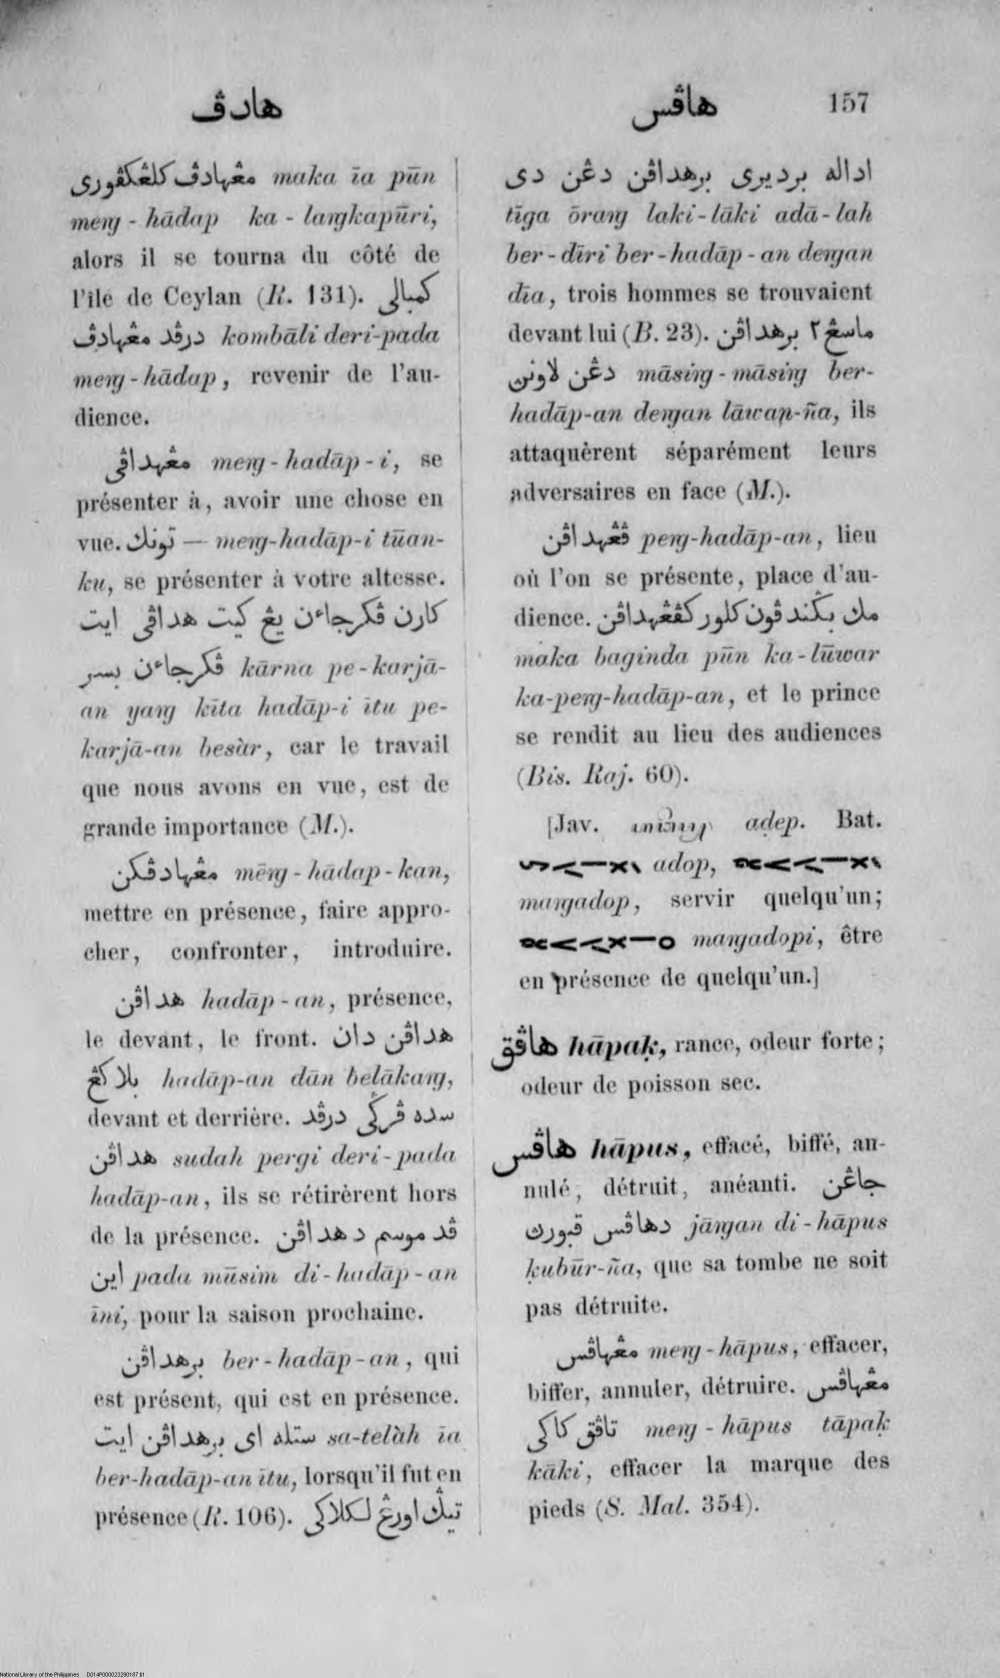 هادڤ
هاڤس
157
مڠهادڤ كلڠكڤوري maka īa pūn
meng-hādap ka-langkapūri,
alors il se tourna du côté de
l'île de Ceylan (R. 131). كمبالي
درڤد مڠهادڤ kombāli deri-pada
meng-hādap, revenir de l'au-
dience.
مڠهداڤي meng-hadāp-i, se
présenter à, avoir une chose en
vue. تونك — meng-hadāp-i tūan-
ku, se présenter à votre altesse.
كارن ڤكرجاءن يڠ كيت هداڤي ايت
ڤكرجاءن بسر kārna pe-karjā-
an yang kīta hadāp-i ītu pe-
karjā-an besàr, car le travail
que nous avons en vue, est de
grande importance (M.).
مڠهادڤكن mēng-hādap-kan,
mettre en présence, faire appro-
cher, confronter, introduire.
هداڤن hadāp-an, présence,
le devant, le front. هداڤن دان
بلاكڠ hadāp-an dān belākang,
devant et derrière. سده ڤرڬي درڤد
هداڤن sudah pergi deri-pada
hadāp-an, ils se rétirèrent hors
de la présence. ڤد موسم دهداڤن
اين pada mūsim di-hadāp-an
īni, pour la saison prochaine.
برهداڤن ber-hadāp-an, qui
est présent, qui est en présence.
ستله اي برهداڤن ايت sa-telàh īa
ber-hadāp-an ītu, lorsqu'il fut en
présence (R. 106). تيڬ اورڠ لكلاكي
اداله برديري برهداڤن دڠن دي
tīga ōrang laki-lāki adā-lah
ber-dīri ber-hadāp-an dengan
dīa, trois hommes se trouvaient
devant lui (B. 23). ماسڠ٢ برهداڤن
دڠن لاونن māsing-māsing ber-
hadāp-an dengan lāwan-ña, ils
attaquèrent séparément leurs
adversaires en face (M.).
ڤڠهداڤن peng-hadāp-an, lieu
où l'on se présente, place d'au-
dience. مك بڬندڤون كلور كڤڠهداڤن
maka baginda pūn ka-lūwar
ka-peng-hadāp-an, et le prince
se rendit au lieu des audiences
(Bis. Raj. 60).
[Jav. aḍep. Bat.
adop,
mangadop, servir quelqu'un;
mangadopi, être
en présence de quelqu'un.]
هاڤق hāpaḳ, rance, odeur forte;
odeur de poisson sec.
هاڤس hāpus, effacé, biffé, an-
nulé, détruit, anéanti. جاڠن
دهاڤس قبورڽ jāngan di-hāpus
ḳubūr-ña, que sa tombe ne soit
pas détruite.
مڠهاڤس meng-hāpus, effacer,
biffer, annuler, détruire. مڠهاڤس
تاڤق كاكي meng-hāpus tāpaḳ
kāki, effacer la marque des
pieds (S. Mal. 354).
National Library of the Philippines